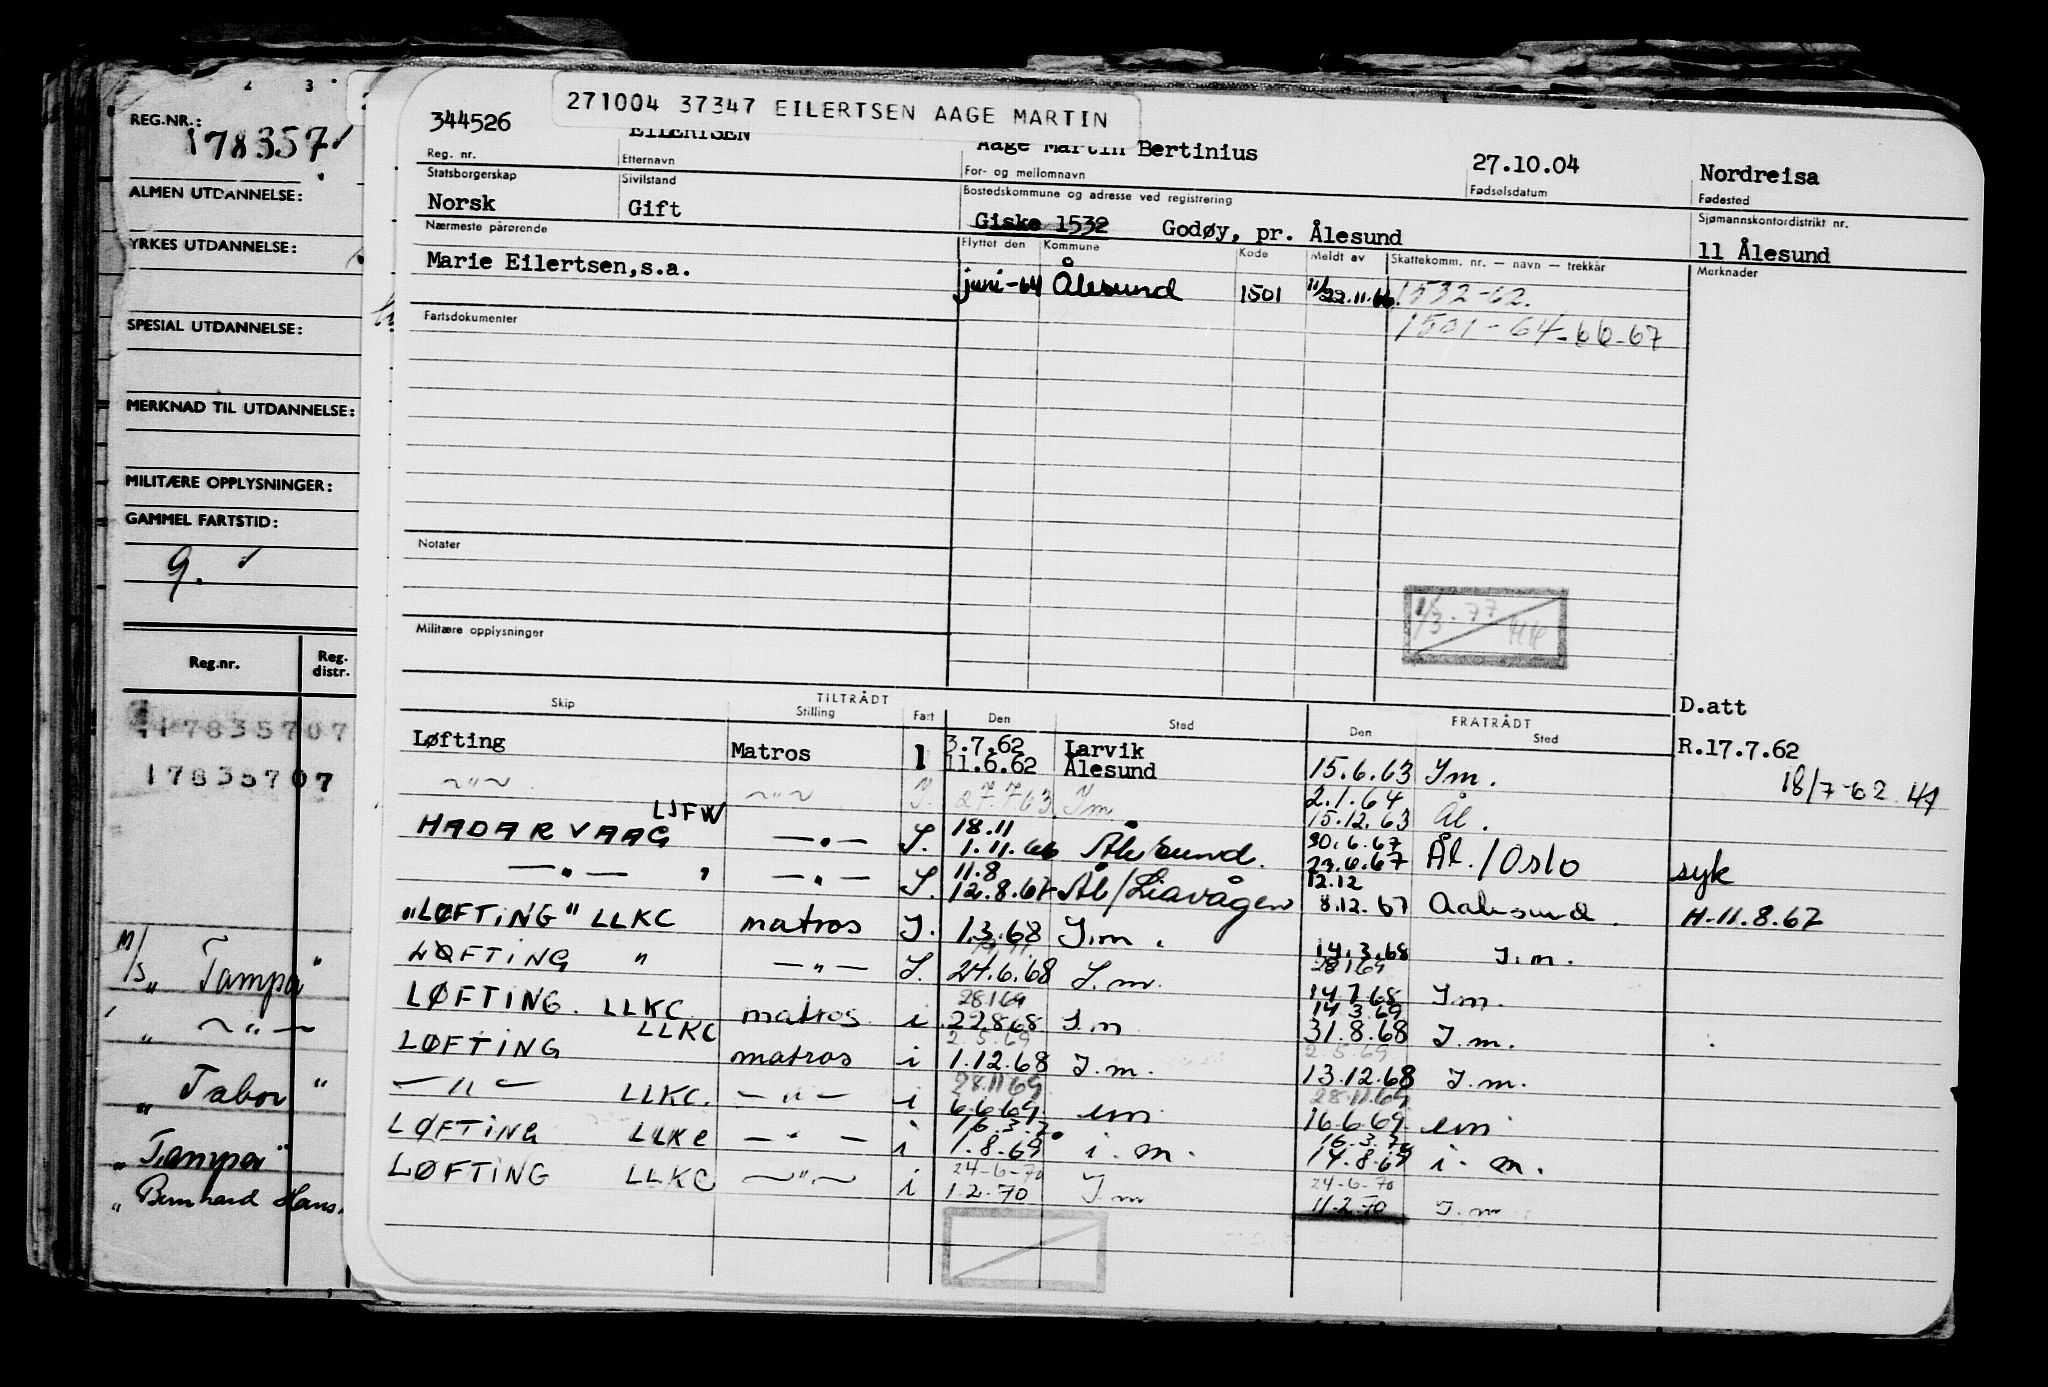 REG.NR.:
178357
ALMEN UTDANNELSE:
YRKES UTDANNELSE:
SPESIAL UTDANNELSE:
MERKNAD TIL UTDANNELSE:
MILITÆRE OPPLYSNINGER:
GAMMEL FARTSTID:
9.
Reg.nr. Reg. distr.
17835707
17835707
M/S „ Tampa "
„ — " —
„ Tabor "
„ Tampa "
„ Bernhard Hans
271004 37347 EILERTSEN AAGE MARTIN
344526 EILERTSEN Aage Martin Bertinius 27.10.04 Nordreisa
Reg. nr. Etternavn For- og mellomnavn Fødselsdatum Fødested
Statsborgerskap Sivilstand Bostedskommune og adresse ved registrering Sjømannskontordistrikt nr.
Norsk Gift Giske 1532 Godøy, pr. Ålesund 11 Ålesund
Nærmeste pårørende Flyttet den Kommune Kode Meldt av Skattekomm. nr. — navn — trekkår Merknader
Marie Eilertsen,s.a. juni-64 Ålesund 1501 11/22.11.66. 1532-62.
1501-64-66-67
Fartsdokumenter
Notater
1/3-77
Militære opplysninger
D.att
TILTRÅDT FRATRÅDT
Skip Stilling Fart Den Sted Den Sted
Løfting Matros 1 3.7.62 Larvik R.17.7.62
11.6.62 Ålesund 15.6.63 Im. 18/7-62
— " — — " — I. 27.7.63 Im 2.1.64
15.12.63 Ål.
HADARVAAG LJFW — " — I. 18.11 30.6.67
1.11.66 Ålesund. 23.6.67 Ål./Oslo syk
— " — " — " — I. 11.8 12.12
12.8.67 Ål/Liavågen 8.12.67 Aalesund. H.11.8.67
"LØFTING" LLKC matros I. 1.3.68 I.m. 14.3.68 I.m.
LØFTING " — " — I. 24.6.68 I.m. 28169
14.7.68 I.m.
LØFTING. LLKC matros i 28.1.69 14.3.69
22.8.68 I.m 31.8.68 I.m.
LØFTING LLKC matros i 2.5.69 2.5.69
1.12.68 I.m. 13.12.68 I.m.
— " — LLKC. — " — i 28.11.69 28.11.69
6.6.69 im 16.6.69 im
LØFTING LLKC — " — i 16.3.70 16.3.70
1.8.69 i.m. 14.8.69 i.m.
LØFTING LLKC — " — i 24-6-70 24-6-70
1.2.70 I.m 11.2.70 I.m